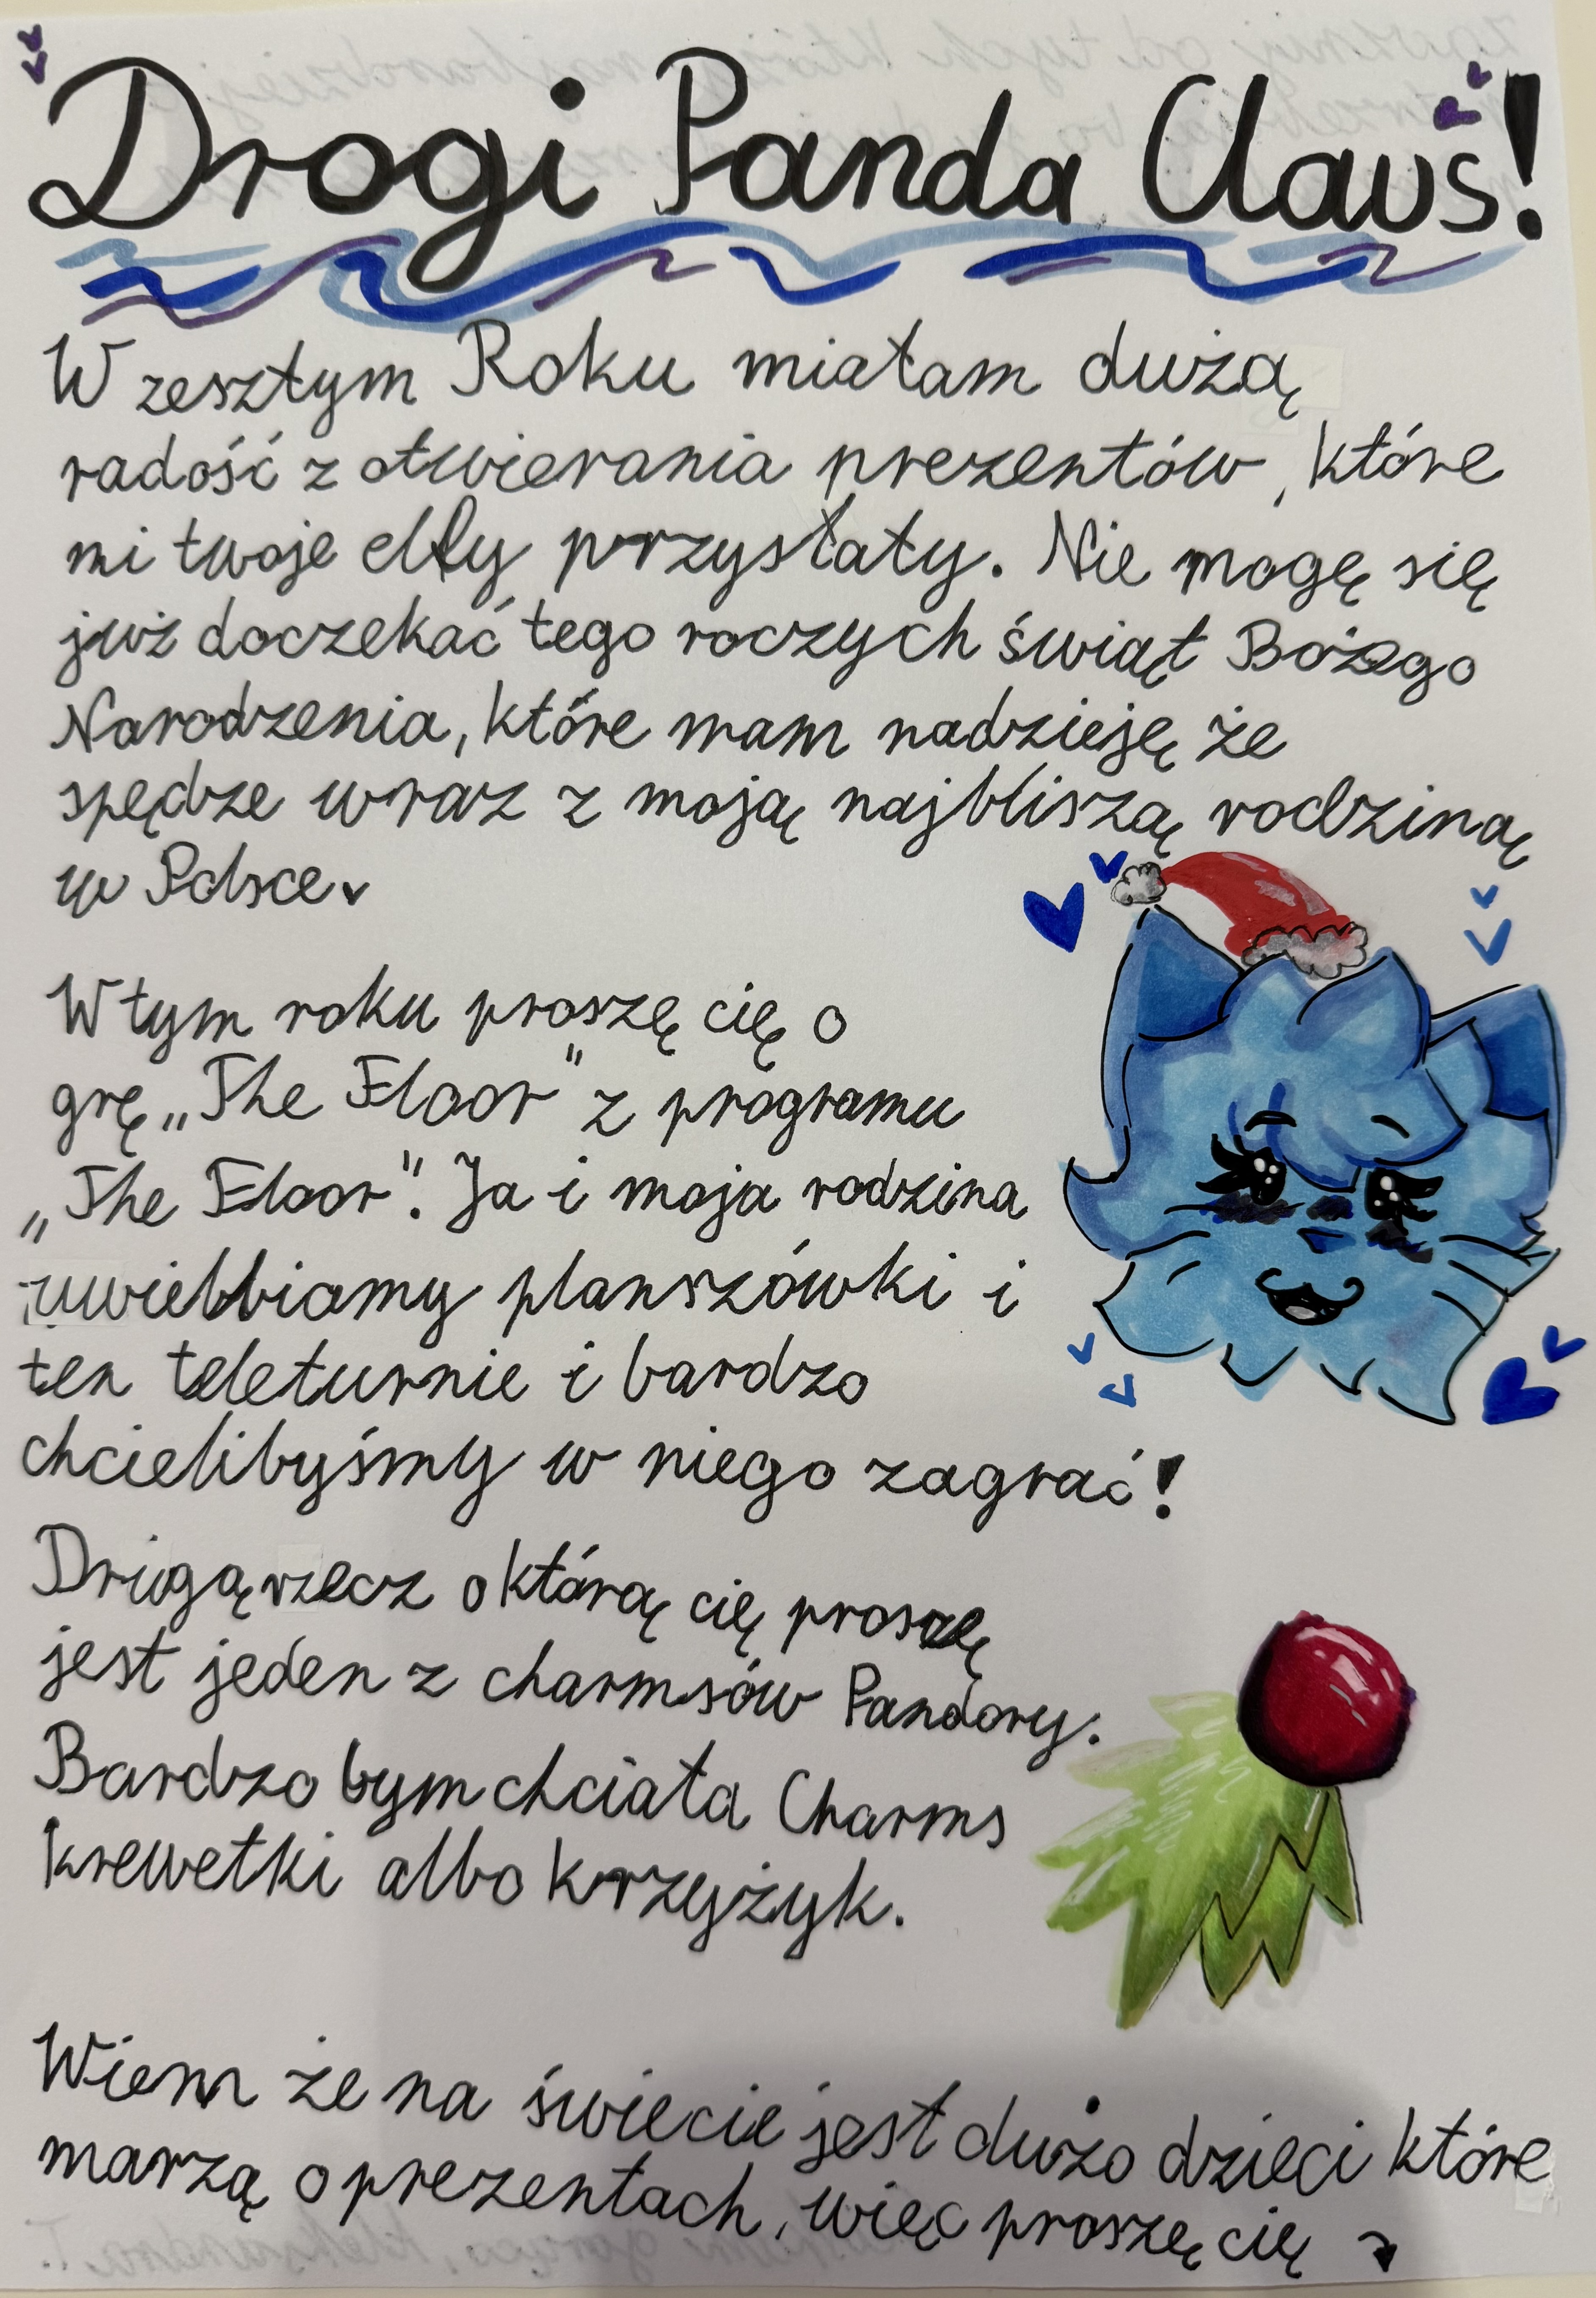 Drogi Panda Claus!
W zesztym Roku miałam dużą
radość z otwierania prezentów, które
mi twoje elfy przysłaty. Nie mogę się
już doczekać tego roczych świąt Bożego
Narodzenia, które mam nadzieję że
spędze wraz z moją najbliszą rodziną
w Polsce.
W tym roku proszę cię o
grę „The Floor" z programu
„The Floor". Ja i moja rodzina
uwielbiamy planszówki i
ten teleturnie i bardzo
chcielibyśmy w niego zagrać!
Drugą rzecz o którą cię proszę
jest jeden z charmsów Pandory.
Bardzo bym chciała Charms
krewetki albo krzyżyk.
Wiem że na świecie jest dużo dzieci które
marzą o prezentach, więc proszę cię ↘